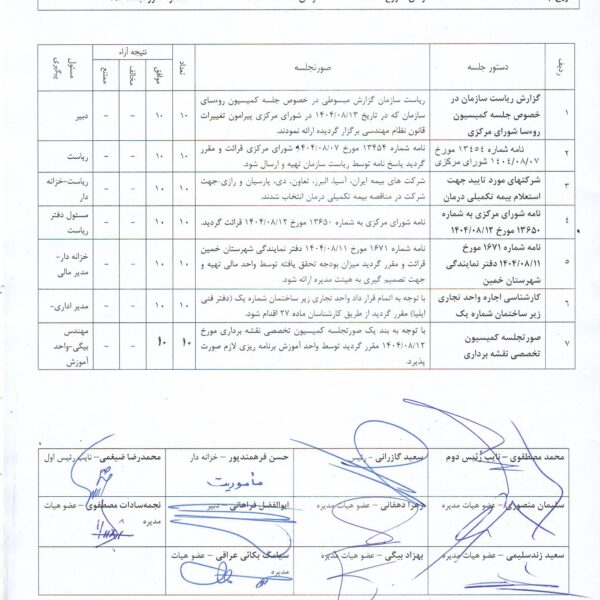 ردیف
دستور جلسه
صورتجلسه
تعداد
نتیجه آراء
موافق
مخالف
ممتنع
مسئول پیگیری
۱
گزارش ریاست سازمان در
خصوص جلسه کمیسیون
روسا شورای مرکزی
ریاست سازمان گزارش مبسوطی در خصوص جلسه کمیسیون روسای
سازمان که در تاریخ ۱۴۰۴/۰۸/۱۳ در شورای مرکزی پیرامون تغییرات
قانون نظام مهندسی برگزار گردیده ارائه نمودند.
۱۰
۱۰
–
–
دبیر
۲
نامه شماره ۱۳۴۵۴ مورخ
۱۴۰۴/۰۸/۰۷ شورای مرکزی
نامه شماره ۱۳۴۵۴ مورخ ۱۴۰۴/۰۸/۰۷ شورای مرکزی قرائت و مقرر
گردید پاسخ نامه توسط ریاست سازمان تهیه و ارسال شود.
۱۰
۱۰
–
–
ریاست
۳
شرکتهای مورد تایید جهت
استعلام بیمه تکمیلی درمان
شرکت های بیمه ایران، آسیا، البرز، تعاون، دی، پارسیان و رازی جهت
شرکت در مناقصه بیمه تکمیلی درمان انتخاب شدند.
۱۰
۱۰
–
–
ریاست-خزانه
دار
۴
نامه شورای مرکزی به شماره
۱۳۶۵۰ مورخ ۱۴۰۴/۰۸/۱۲
نامه شورای مرکزی به شماره ۱۳۶۵۰ مورخ ۱۴۰۴/۰۸/۱۲ قرائت گردید.
۱۰
۱۰
–
–
مسئول دفتر
ریاست
۵
نامه شماره ۱۶۷۱ مورخ
۱۴۰۴/۰۸/۱۱ دفتر نمایندگی
شهرستان خمین
نامه شماره ۱۶۷۱ مورخ ۱۴۰۴/۰۸/۱۱ دفتر نمایندگی شهرستان خمین
قرائت و مقرر گردید میزان بودجه تحقق یافته توسط واحد مالی تهیه و
جهت تصمیم گیری به هیئت مدیره ارائه شود.
۱۰
۱۰
–
–
خزانه دار-
مدیر مالی
۶
کارشناسی اجاره واحد تجاری
زیر ساختمان شماره یک
با توجه به اتمام قرار داد واحد تجاری زیر ساختمان شماره یک (دفتر فنی
ایلیا) مقرر گردید از طریق کارشناسان ماده ۲۷ اقدام شود.
۱۰
۱۰
–
–
مدیر اداری-
۷
صورتجلسه کمیسیون
تخصصی نقشه برداری
با توجه به بند یک صورتجلسه کمیسیون تخصصی نقشه برداری مورخ
۱۴۰۴/۰۸/۱۲ مقرر گردید توسط واحد آموزش برنامه ریزی لازم صورت
پذیرد.
۱۰
۱۰
–
–
مهندس
بیگی-واحد
آموزش
محمد مصطفوی – نایب رئیس دوم
سعید گازرانی – رئیس
حسن فرهمندپور – خزانه دار
مأموریت
محمدرضا ضیغمی – نایب رئیس اول
سلیمان منصوری – عضو هیات مدیره
زهرا دهقانی – عضو هیات مدیره
ابوالفضل فراهانی – دبیر
نجمه‌سادات مصطفوی – عضو هیات
مدیره
سعید زندسلیمی – عضو هیات مدیره
بهزاد بیگی – عضو هیات مدیره
سیامک بکائی عراقی – عضو هیات
مدیره